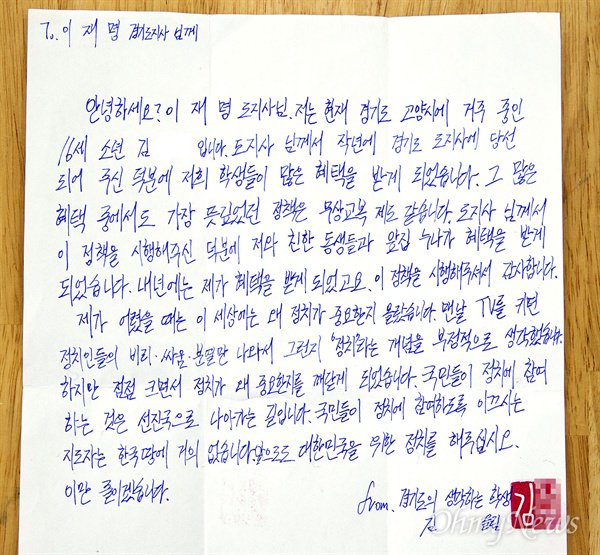 To. 이 재 명 경기도지사 님께
안녕하세요? 이 재 명 도지사님. 저는 현재 경기도 고양시에 거주 중인
16세 소년 김 입니다. 도지사 님께서 작년에 경기도 도지사에 당선
되어 주신 덕분에 저희 학생들이 많은 혜택을 받게 되었습니다. 그 많은
혜택 중에서도 가장 뜻깊었던 정책은 무상교복 제도 같습니다. 도지사 님께서
이 정책을 시행해주신 덕분에 저와 친한 동생들과 옆집 누나가 혜택을 받게
되었습니다. 내년에는 제가 혜택을 받게 되었고요. 이 정책을 시행해주셔서 감사합니다.
제가 어렸을 때는 이 세상에는 왜 정치가 중요한지 몰랐습니다. 맨날 TV를 키면
정치인들의 비리·싸움·분열만 나와서 그런지 '정치'라는 개념을 부정적으로 생각했습니다.
하지만 점점 크면서 정치가 왜 중요한지를 깨닫게 되었습니다. 국민들이 정치에 참여
하는 것은 선진국으로 나아가는 길입니다. 국민들이 정치에 참여하도록 이끄시는
지도자는 한국땅에 거의 없습니다. 앞으로도 대한민국을 위한 정치를 해주십시오.
이만 줄이겠습니다.
from. 경기도의 생각하는 학생
김 올림
김
OhmyNews